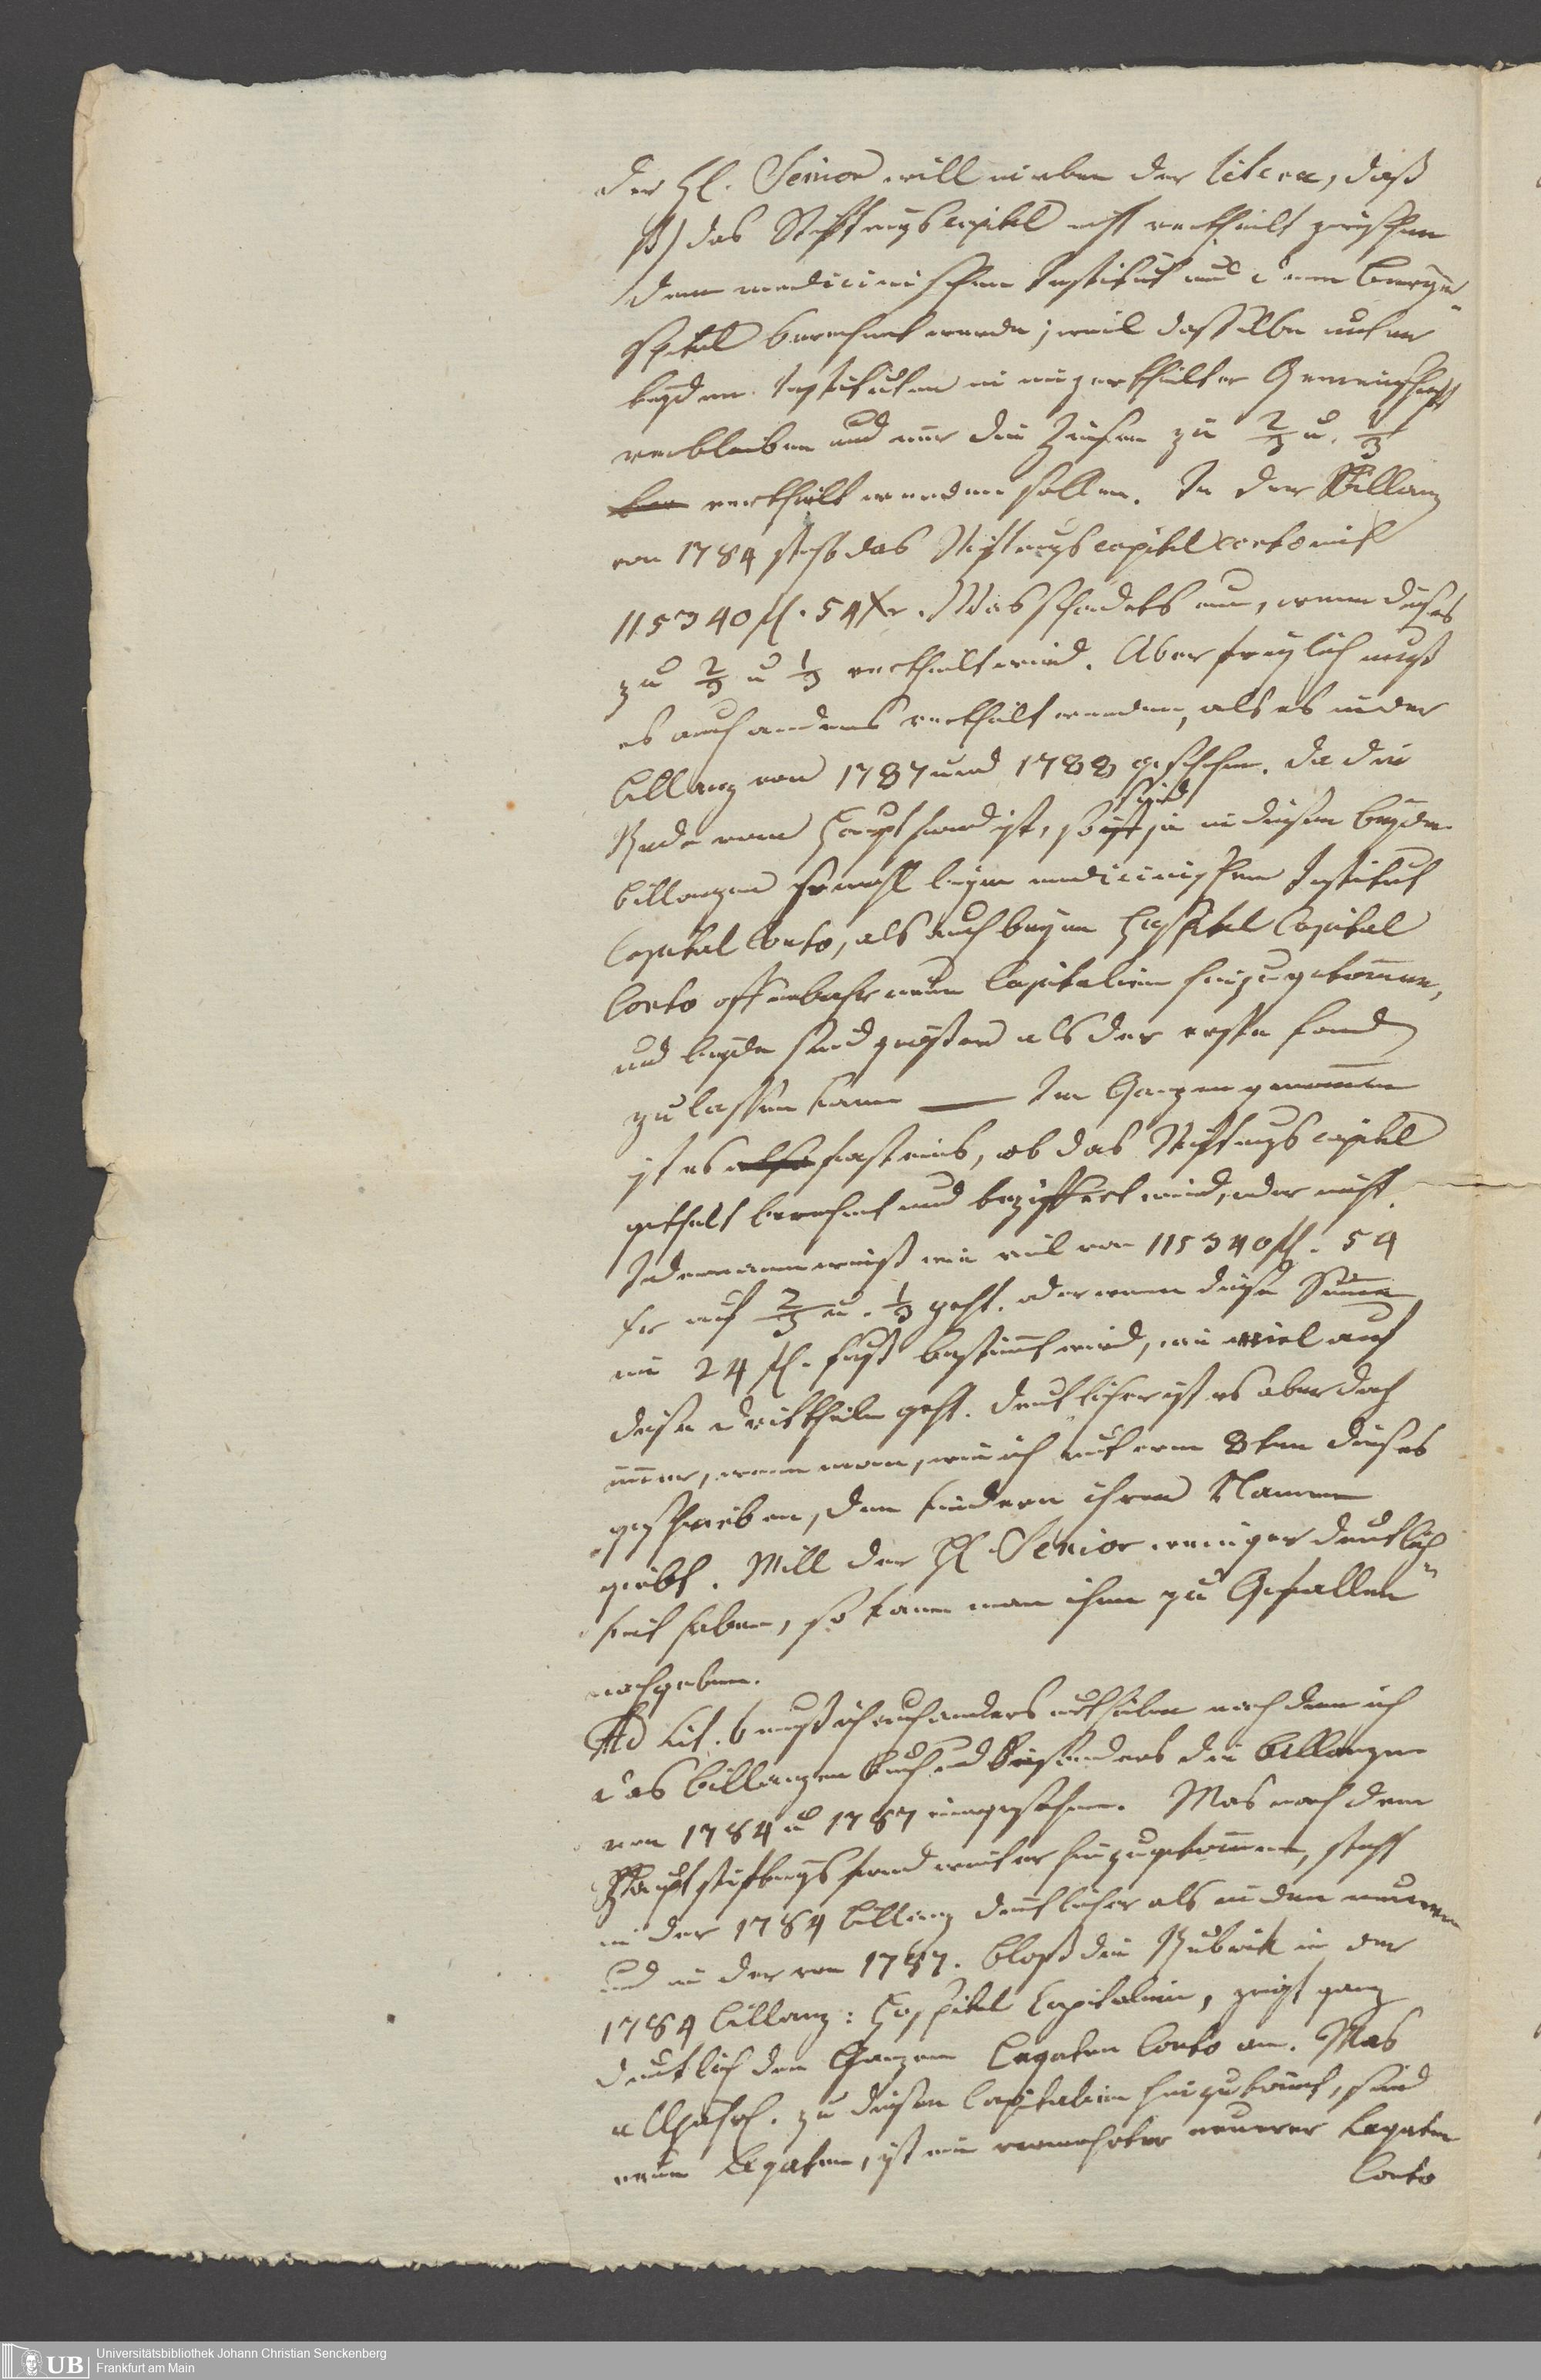 Der H. Senior will in eben der litera, daß
β) das Stiftungscapital nicht vertheilt zwischen
dem medicinischen Institut und dem Bürger„
spital berechnet werde; weil dasselbe unter
beyden Instituten in unzertheilter Gemeinschafft
verbleiben und nur die Zinsen zu 2/3 u. 1/3
vertheilt werden sollen. In der Billanz
von 1784 steht das Stiftungscapital Conto mit
115340 fl. 54 Xr. Was schadets nun, wenn dieses
zu 2/3 u 1/3 vertheilt wird. Aber freylich muß
es auch anders vertheilt werden, als es in der
Billanz von 1787 und 1788 geschehen. Da die
Rede vom Hauptfond ist, so ist sind ja in diesen beyden
Billanzen sowohl beym medicinischen Institut
Capital Conto, als auch beym Hospital Capital
Conto offenbahr neue Capitalien hinzugekommen,
und beyde sind größer als der erste Fond
zulassen kann — Im Ganzen genommen
ist es also fast eins, ob das Stiftungscapital
getheilt berechnet und beziffert wird, oder nicht.
Jedermann weiß wie viel von 115340 fl. 54
Xr auf 2/3 u. 1/3 geht. oder wenn diese Summe
im 24 fl. Fuß bestimmt wird, wie viel auf
diese Drittheile geht. Deutlicher ist es aber doch
immer, wenn man, wie ich unterm 8ten dieses
geschrieben, den Kindern ihren Namen
giebt. Will der H. Senior weniger Deutlich„
keit haben, so kann man ihm zu Gefallen
nachgeben.
Ad Lit. b muß ich auch anders urtheilen nachdem ich
das Billanzen Buch und besonders die Billanzen
von 1784 u 1787 eingesehen. Was nach dem
Hauptstiftungsfond weiter hinzugekommen, steht
in der 1784 Billanz deutlicher als in den neueren
und in der von 1787. bloß die Rubrik in der
1784 Billanz: Hospital Capitalien, zeigt ganz
deutlich den Ganzen Legaten Conto an. Was
alljährl. zu diesen Capitalien hinzukommt, sind
neue Legaten, ist ein vermehrter neuerer Legaten
Conto
Universitätsbibliothek Johann Christian Senckenberg
Frankfurt am Main
UB